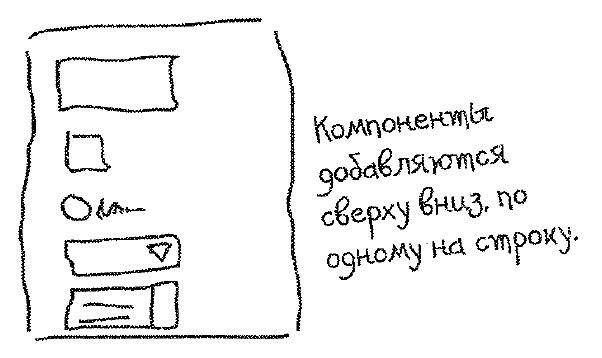 Компоненты
добавляются
сверху вниз, по
одному на строку.